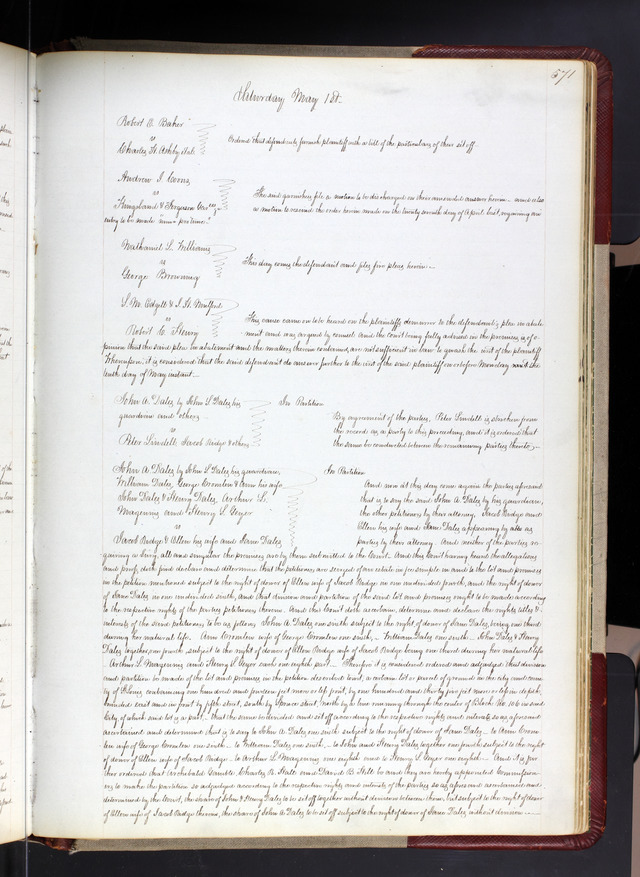 571
Saturday May 1st.
Robert O. Baker
vs
Charles H. Ashby et al.
Ordered that defendants furnish plaintiff with a bill of the particulars of their set off.
Andrew J. 
as
Kingsland & Ferguson
The said garnishee file a motion to be discharged on their amended answer herein and also
a motion to rescind the order herein made on the twenty seventh day of April last, requiring an
entry to be made
Nathaniel L. Williams
vs
George Browning
This day comes the defendant and files five pleas herein.
L. M. Edgell & S. H. Mulford
vs
Robert C. Henry
This cause came on to be heard on the plaintiffs demurrer to the defendant's plea in abate
ment and was argued by counsel and the Court being fully advised in the premises is of o
pinion that the said plea in abatement and the matters therein contained, are not sufficient in law to quash the writ of the plaintiff
Whereupon it is considered that the said defendant do answer further to the writ of the said plaintiff on or before Monday next the
tenth day of May instant.
John A. Dales by John L. Dales his
guardian and others
vs
Peter Lindell, Jacob Rudge & others
In Partition
By agreement of the parties, Peter Lindell is stricken from
the record as a party to this proceeding and it is ordered that
the same be conducted between the remaining parties thereto.
John A. Dales by John L. Dales his guardian,
William Dales, George Cromlow & Ann his wife,
John Dales & Henry Dales, Arthur L.
Magenis and Henry S. Geyer
vs
Jacob Rudge & Ellen his wife and Jane Dales
In Partition
And now at this day come again the parties aforesaid
that is to say the said John A. Dales by his guardian,
the other petitioners by their attorney, Jacob Rudge and
Ellen his wife and Jane Dales appearing by
parties by their attorney. And neither of the parties re
quiring a Jury, all and singular the premises are by them submitted to the Court. And the Court having heard the allegations
and proofs, doth find declare and determine that the petitioners are seized of an estate in fee simple in and to the lot and premises
in the petition mentioned subject to the right of dower of Ellen wife of Jacob Rudge in one undivided fourth, and the right of dower
of Jane Dales in one undivided sixth, and that division and partition of the said lot and premises ought to be made according
to the respective rights of the parties petitioners therein. And the Court doth ascertain, determine and declare the rights, titles &
interests of the said petitioners to be as follows, John A. Dales, one sixth subject to the right of dower of Jane Dales, being one third
during her natural life. Ann Cromlow wife of George Cromlow one sixth, William Dales one sixth, John Dales & Henry
Dales, together, one fourth, subject to the right of dower of Ellen Rudge wife of Jacob Rudge being one third during her natural life
Arthur L. Magenis and Henry S. Geyer each one eighth part. Therefore it is considered ordered and adjudged that division
and partition be made of the lot and premises in the petition described to wit, a certain lot or parcel of ground in the city and coun
ty of St Louis, containing one hundred and fourteen feet more or less front, by one hundred and thirty five feet more or less in depth,
bounded east and in front by fifth street, south by Spruce street, north by a line running through the center of Block No. 106 in said
City of which said lot is a part. That the same be divided and set off according to the respective rights and interests, so as aforesaid
ascertained and determined that is to say to John A. Dales, one sixth subject to the right of dower of Jane Dales. To Ann Crom
low wife of George Cromlow one sixth. to William Dales, one sixth, to John and Henry Dales, together one fourth subject to the right
of dower of Ellen wife of Jacob Rudge. to Arthur L. Magenis one eighth and to Henry S. Geyer one eighth. And it is fur
ther ordered that Archibald Gamble, Charles B. and David B. Hill be and they are hereby appointed Commission
ers to make the partition so adjudged according to the respective rights and interests of the parties, so as aforesaid ascertained and
determined by the Court, the shares of John & Henry Dales to be set off together without division between them, but subject to the right of dower
of Ellen wife of Jacob Rudge therein, the share of John A. Dales to be set off subject to the right of dower of Jane Dales without division